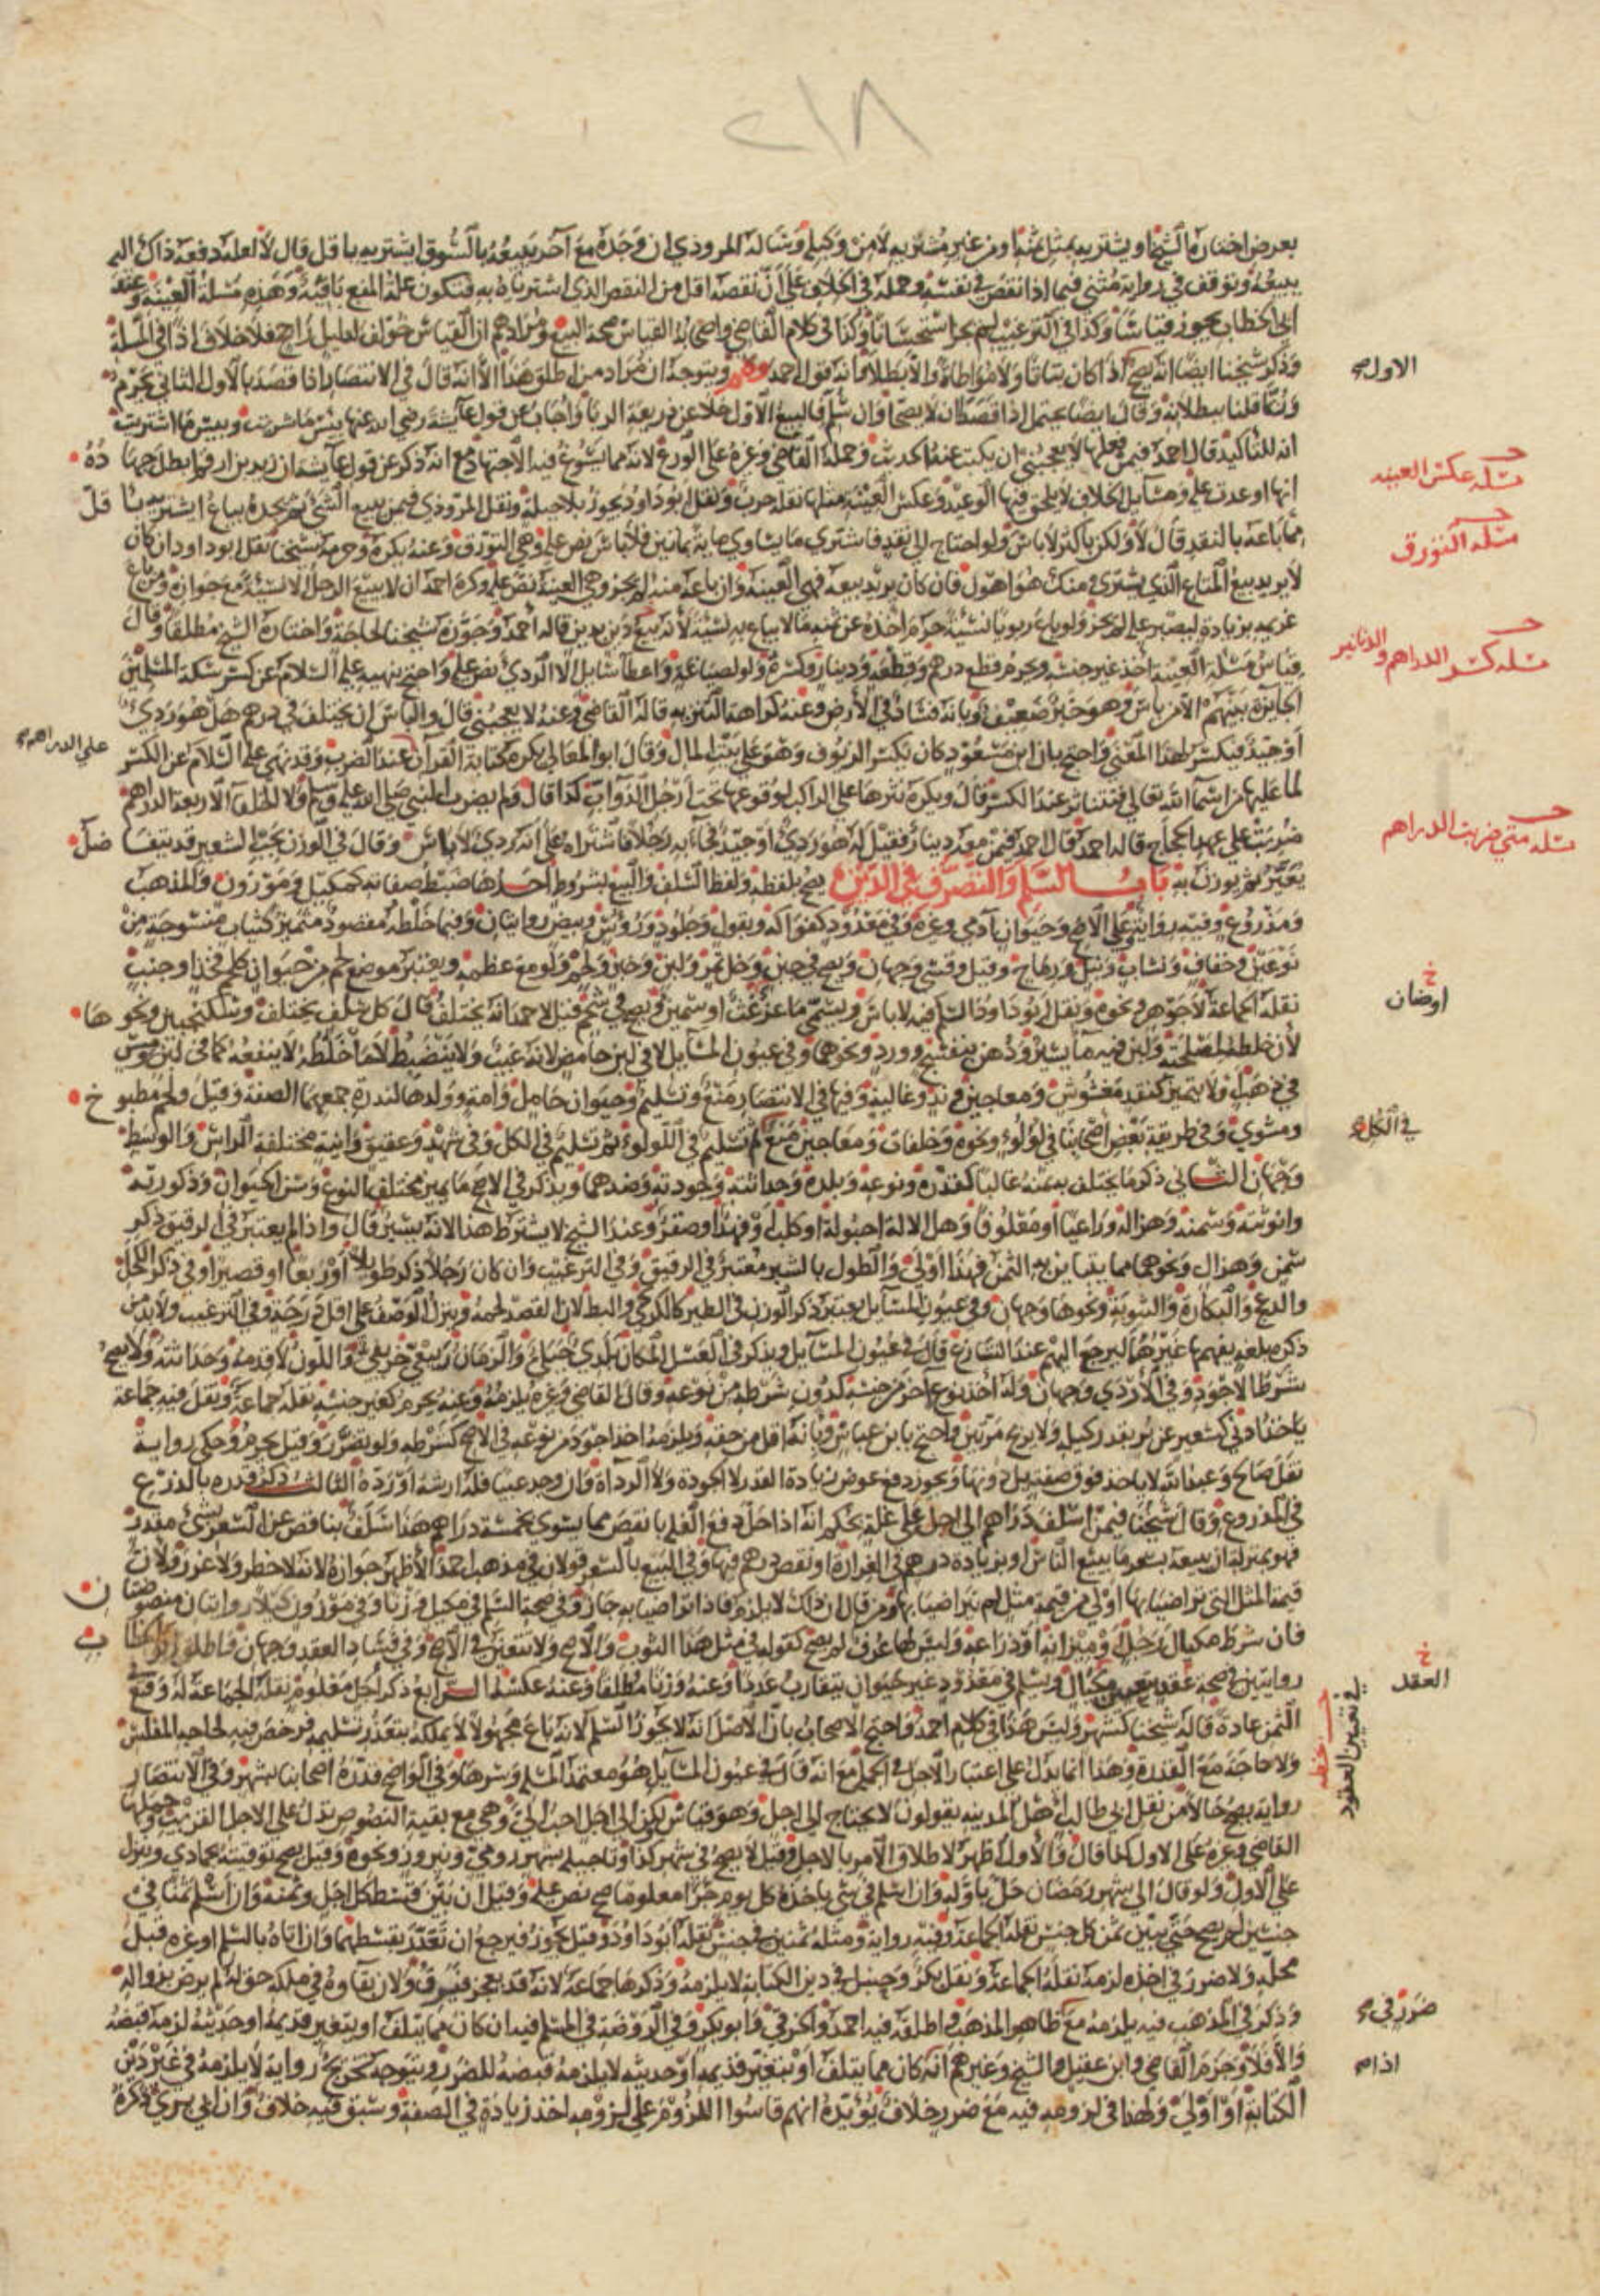 ٢١٨
بعرض اختاره الشيخ او يشتريه بمثل ثمنه او من غير مشتريه لا من وكيله وسأله المروذي ان وجده مع آخر يبيعه بالسوق ايشتريه باقل قال لا لعله دفعه ذاك اليه
يبيعه وتوقف في رواية مثنى فيما اذا نقص في نفسه وحمله في الخلاف على أن نقصه اقل من النقص الذي اشتراه به فتكون علة المنع باقية وهذه مسئلة العينة وعند
ابي الخطاب يجوز قياسا وكذا في الترغيب لم يجز استحسانا وكذا في كلام القاضي واصحابه القياس صحة البيع ومرادهم ان القياس خولف لدليل راجح فلا خلاف اذا في المسئلة
وذكر شيخنا ايضا انه يصح اذا كان بتاتا ولا مواطاة والا بطلا وانه قول احمد وهم ويتوجه ان مراد من اطلق هذا الا انه قال في الانتصار اذا قصد بالاول الثاني يحرم
الاول صح
وربما قلنا ببطلانه وقال ايضا يحتمل اذا قصدا ان لا يصحا وان سلم فالبيع الاول خلا عن ذريعة الربا واجاب عن قول عايشة رضي الله عنها بئس ما شريت وبيس ما اشتريت
انه للتاكيد قال احمد فيمن فعلها لا يعجبني ان يكتب عنه الحديث وحمله القاضي وغيره على الورع لانه مما يسوغ فيه الاجتهاد مع انه ذكر عن قول عايشة ان زيد بن ارقم ابطل جهاده
انها اوعدت عليه ومسايل الخلاف لا يلحق فيها الوعيد وعكس العينة مثلها نقله حرب ونقل ابو داود يجوز بلا حيلة ونقل المروذي فيمن يبيع الشئ ثم يجده يباع ايشتريه باقل
مسئلة عكس العينه
مما باعه بالنقد قال لا ولكن باكثر لا باس ولو احتاج الى نقد فاشترى ما يساوي ماية بمايتين فلا باس نص عليه وهي التورق وعنه يكره وحرمه شيخنا نقل ابو داود ان كان
مسئلة التورق
لا يريد بيع المتاع الذي يشترى منك هو اهون فان كان يريد بيعه فهو العينة وان باعه منه لم يجز وهي العينة نص عليه وكره احمد ان لا يبيع الرجل الا نسيئة مع جوازه ومن باع
غريمه بزيادة ليصبر عليه لم يجز ولو باع ربويا نسيئة حرم اخذه عن ثمنه ما لا يباع به نسيئة لأنه بيع دين بدين قاله احمد وجوزه شيخنا لحاجة واختاره الشيخ مطلقا وقال
قياس مسئلة العينة اخذ غير جنسه ويحرم قطع درهم وقطعه ودينار وكسره ولو لصياغة واعطآ سايل الا الردي نص عليه واحتج بنهيه عليه السلام عن كسر سكة المسلمين
مسئلة كسر الدراهم والدنانير
الجايزة بينهم الا من باس وهو خبر ضعيف وبانه فساد في الارض وعنه كراهة التنزيه قاله القاضي وعنه لا يعجبني قال والباس ان يختلف في درهم هل هو ردي
او جيد فيكسر لهذا المعنى واحتج بان ابن مسعود كان يكسر الزيوف وهو على بيت المال وقال ابو المعالي يكره كتابة القرآن عند الضرب وقد نهى عليه السلام عن الكسر
على الدراهم صح
لما عليها من اسمآ الله تعالى فيتناثر عند الكسر قال ويكره نثرها على الراكب لوقوعها تحت ارجل الدواب كذا قال ولم يضرب النبي صلى الله عليه وسلم ولا الخلفآ الاربعة الدراهم
ضربت على عهد الحجاج قاله احمد قال احمد فيمن معه دينار فقيل له هو ردي او جيد فجآء به رجلا فاشتراه على انه ردي لا باس وقال في الوزن بحب الشعير قد يتفاضل
مسئلة متى ضربت الدراهم
يعير ثم يوزن به باب السلم والتصرف في الدين يصح بلفظه ولفظ السلف والبيع بشروط احدها ضبط صفاته كمكيل وموزون والمذهب
ومذروع وفيه روايتين على الاصح وحيوان آدمي وغيره وفي معدود كفواكه وبقول وجلود ورؤس وبيض روايتان وفيما خلطه مقصود متميز كثياب منسوجة من
نوعين وخفاف ونشاب ونبل ورماح وقيل وقسي وجهان ويصح في جبن وخل تمر ولبن وخبز ولحم ولو مع عظمه ويعتبر موضع لحم من حيوان كلحم فخذ او جنب
نقله الجماعة لا جوهر ونحوه ونقل ابو داود السلم فيه لا باس ويسمي ماعز غث او سمين ويصح في شحم قيل لاحمد انه يختلف قال كل سلف يختلف وسكنجبين ونحوها
اوضان خ
لأن خلطه لمصلحته ولبن فيه ما يسير ودهن بنفسج وورد ونحوهما وفي عيون المسايل لا في لبن حامض لانه عيب ولا ينضبط لا ما خلطه لا ينفعه كما في لبن ومس
في ذهب ولا يتميز كنقد مغشوش ومعاجين وند وغالية وفيها في الانتصار منع وتسليم وحيوان حامل وامة وولدها لندرة جمعهما الصفة وقيل ولحم مطبوخ
ومشوي وفي طريقة بعض اصحابنا في لؤلؤ ونحوه وخلفات ومعاجين منع ثم تسليم في اللولو ثم تسليم في الكل وفي شهد وعقيق وانية مختلفة الراس والوسط
في الكل صح
وجهان الثاني ذكر ما يختلف به ثمنه غالبا كقدره ونوعه وبلده وحداثته وجودته وضدهما ويذكر في الاصح ما يميز مختلف النوع وسن الحيوان وذكوريته
وانوثته وسمنه وهزاله وراعيا او معلوفا وهل الالة احبولة او كلب او فهد او صقر وعند الشيخ لا يشترط هذا لانه يسير قال واذا لم يعتبر في الرقيق ذكر
سمن وهزال ونحوهما مما يتباين به الثمن فهذا اولى والطول بالشبر معتبر في الرقيق وفي الترغيب وان كان رجلا ذكر طويلا او ربعا او قصيرا وفي ذكر الكحل
والدعج والبكارة والثيوبة ونحوها وجهان وفي عيون المسايل يعتبر ذكر الوزن في الطير كالكركي والبط لان القصد لحمه وينزل الوصف على اقل درجة وفي الترغيب ولا بد من
ذكره بلغة يفهمها غيرهما ليرجع اليهم عند التنازع قال في عيون المسآيل ويذكر في العسل المكان بلدي جبلي والزمان ربيعي خريفي واللون لا قدمه وحداثته ولا يصح
شرط الاجود وفي الاردي وجهان وله اخذ نوع آخر من جنسه كدون شرطه من نوعه وقال القاضي وغيره يلزمه وعنه يحرم كغير جنسه نقله جماعة ونقل فيه جماعة
ياخذ ادنى كشعير عن بر بقدر كيله ولا يربح مرتين واحتج بابن عباس وبانه اقل من حقه ويلزمه اخذ اجود من نوعه في الاصح كشرطه ولو تضرر وقيل يحرم وحكي رواية
نقل صالح وعبد الله لا ياخذ فوق صفته بل دونها ويجوز دفع عوض زيادة القدر لا الجودة ولا الرداة وان وجد عيبا فله ارشه او رده الثالث ذكر قدره بالذرع
في المذروع وقال شيخنا فيمن اسلف دراهم الى اجل على غلة بحكم انه اذا حل دفع الغلة بانقص مما يسوي بخمسة دراهم هذا سلف بناقص عن السعر بشئ مقدر
فهو بمنزلة ان يبيعه بسعر ما يبيع الناس او بزيادة درهم في الغرارة او نقص درهم فيها وفي البيع بالسعر قولان في مذهب احمد الاظهر جوازه لانه لا خطر ولا غرر ولان
قيمة المثل التي تراضيا بها اولى من قيمة مثل لم يتراضيا بها ومن قال ان ذلك لا يلزم فاذا تراضيا به جاز وفي صحة السلم في مكيل وزنا وفي موزون كيلا روايتان منصوصتان
فان شرط مكيال رجل او ميزانه او ذراعه وليس لها عرف لم يصح كقوله في مثل هذا الثوب والا صح ولا تتعين في الاصح وفي فساد العقد وجهان واطلق ابو الخطاب
روايتين في صحة عقد بتعيين مكيال ويسلم في معدود غير حيوان يتقارب عددا وعنه وزنا مطلقا وعنه عكسه الرابع ذكر اجل معلوم نقله الجماعة له وقع
العقد خ
في الثمن عادة قاله شيخنا كشهر وليس هذا في كلام احمد واحتج الاصحاب بان الاصل انه لا يجوز السلم لانه باع مجهولا لا يملكه يتعذر تسليمه فرخص فيه لحاجة المفلس
في تعيين العقود
ولا حاجة مع القدرة وهذا انما يدل على اعتبار الاجل في الجملة مع انه قال في عيون المسآيل هو معتمد المسئلة وسرها وفي الواضح قدره اصحابنا بشهر وفي الانتصار
رواية يصح حالا من نقل ابي طالب اهل المدينه يقولون لا يحتاج الى اجل وهو قياس لكن الى اجل احب الي وهي مع بقية النصوص تدل على الاجل القريب وحملها
القاضي وغيره على الاول كذا قال والاول اظهر لاطلاق الامر بالاجل وقيل لا يصح في شهر كذا وتاجيله بشهر رومي ونيروز ونحوه وقيل يصح توقيته بجمادى وينزل
على الاول ولو قال الى شهر رمضان حل باوله وان اسلم في شي ياخذه كل يوم جزا معلوما صح نص عليه وقيل ان بين قسط كل اجل وثمنه وان اسلم ثمنا في
جنسين لم يصح حتى يبين ثمن كل جنس نقله الجماعة وفيه رواية ومثله ثمنين في جنس نقله ابو داود وقيل يجوز فيرجع ان تعذر بقسطهما وان اتاه بالسلم او غيره قبل
محله ولا ضرر في اخذه لزمه نقله الجماعة ونقل بكر وحنبل في دين الكتابة لا يلزمه وذكرها جماعة لانه قد يعجز فيرق ولان بقاوه في ملكه حق له لم يرض بزواله
ضرر في صح
وذكر في المذهب فيه يلزمه مع ظاهر المذهب واطلقه فيه احمد والخرقي وابو بكر وفي الروضة في المسلم فيه ان كان مما يتلف او يتغير قديمه او حديثه لزمه قبضه
والا فلا وجزم القاضي وابن عقيل والشيخ وغيرهم انه كان مما يتلف او يتغير قديمه او حديثه لا يلزمه قبضه للضرر ويتوجه تخريج رواية لا يلزمه في غير دين
اذا صح
الكتابة او اولى ولهذا في لزومه فيه مع ضرر خلاف يؤيده انهم قاسوا اللزوم على لزومه اخذ زيادة في الصفة وسبق فيه خلاف وان ابى بري ذكره